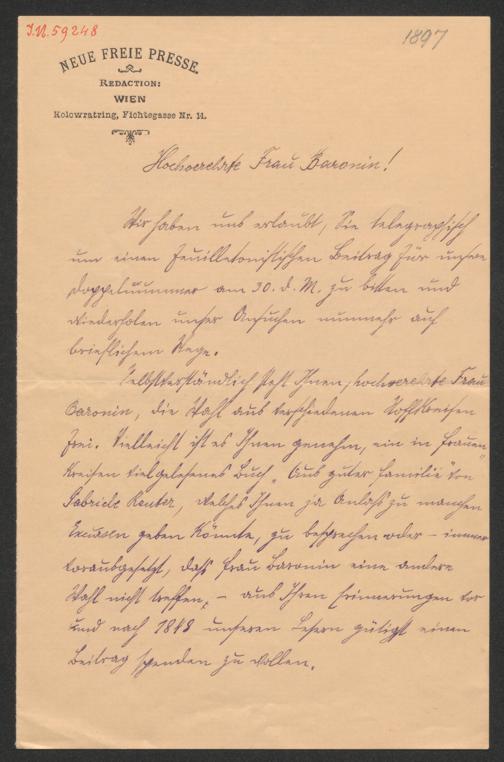 I.N. 59248
1897
NEUE FREIE PRESSE.
REDACTION:
WIEN
Kolowratring, Fichtegasse Nr. 11.
Hochverehrte Frau Baronin!
Wir haben uns erlaubt, Sie telegraphisch
um einen feuilletonistischen Beitrag für unsere
Doppelnummer am 30. d. M. zu bitten und
wiederholen unser Ansuchen nunmehr auf
brieflichem Wege.
Selbstverständlich steht Ihnen, hochverehrte Frau
Baronin, die Wahl aus verschiedenen Stoffkreisen
frei. Vielleicht ist es Ihnen genehm, ein in Frauen
kreisen vielgelesenes Buch „Aus guter Familie" von
Gabriele Reuter, welches Ihnen ja Anlaß zu manchen
Excursen geben könnte, zu besprechen oder – immer
vorausgesetzt, daß Frau Baronin eine andere
Wahl nicht treffen, – aus Ihren Erinnerungen vor
und nach 1848 unseren Lesern gütigst einen
Beitrag spenden zu wollen.